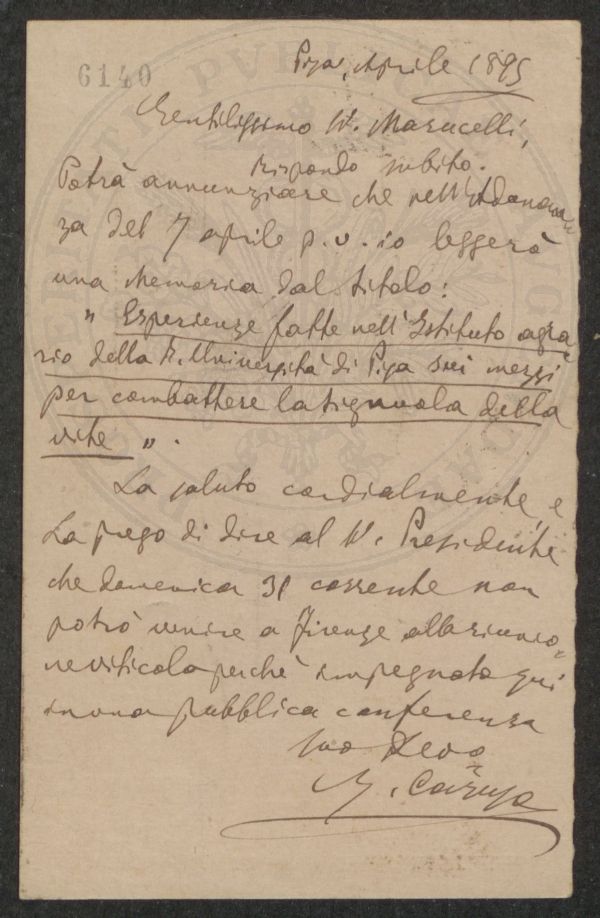 6140
Pisa, Aprile 1895
Gentilissimo Sr. Marucelli,
rispondo subito.
Potrà annunziare che nell'Adunan=
za del 7 aprile p.v. io leggerò
una Memoria dal titolo:
" Esperienze fatte nell'Istituto agra=
rio della R. Università di Pisa sui mezzi
per combattere la tignuola della
vite ".
La saluto cordialmente, e
La prego di dire al Sr. Presidente
che domenica 31 corrente non
potrò venire a Firenze alla riunio=
ne viticola perchè impegnato qui
in una pubblica conferenza
Suo Devo
Caruso